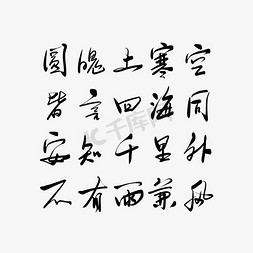 圆魄上寒空
皆言四海同
千库网
安知千里外
不有雨兼风